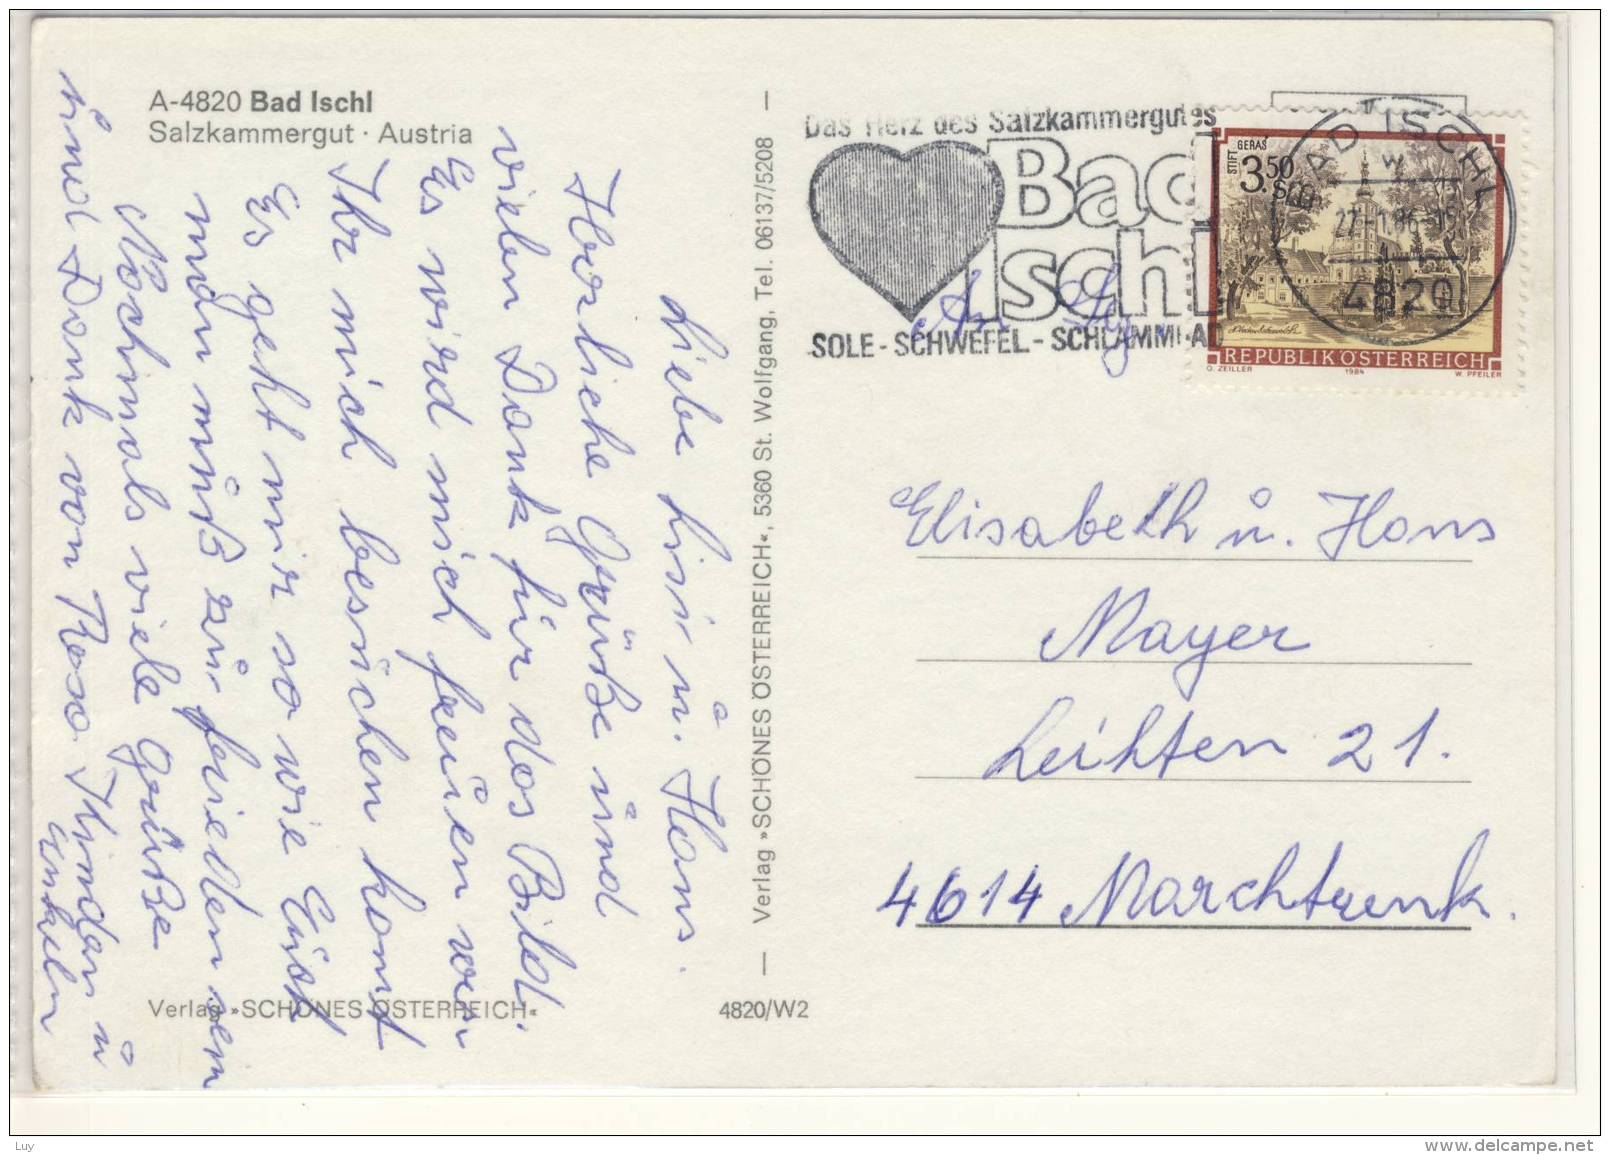 A-4820 Bad Ischl
Salzkammergut · Austria
Liebe Lisi u. Hans.
Herzliche Grüße und
vielen Dank für das Bild.
Es wird mich freuen wen
Ihr mich besuchen komt
Es geht mir so wie Euch
man muß zu frieden sein
Nochmals viele Grüße
und Dank von Resa
Kinder u
Enkeln
Verlag »SCHÖNES ÖSTERREICH«
4820/W2
Verlag »SCHÖNES ÖSTERREICH«, 5360 St. Wolfgang, Tel. 06137/5208
Das Herz des Salzkammergutes
Bad
Ischl
SOLE - SCHWEFEL - SCHLAMMBAD
BAD ISCHL
w
4820
STIFT GERAS
3.50
S
REPUBLIK ÖSTERREICH
O. ZEILLER 1984 W. PFEILER
An
Elisabeth u. Hans
Mayer
Leithen 21.
4614 Marchtrenk.
Luy
www.delcampe.net